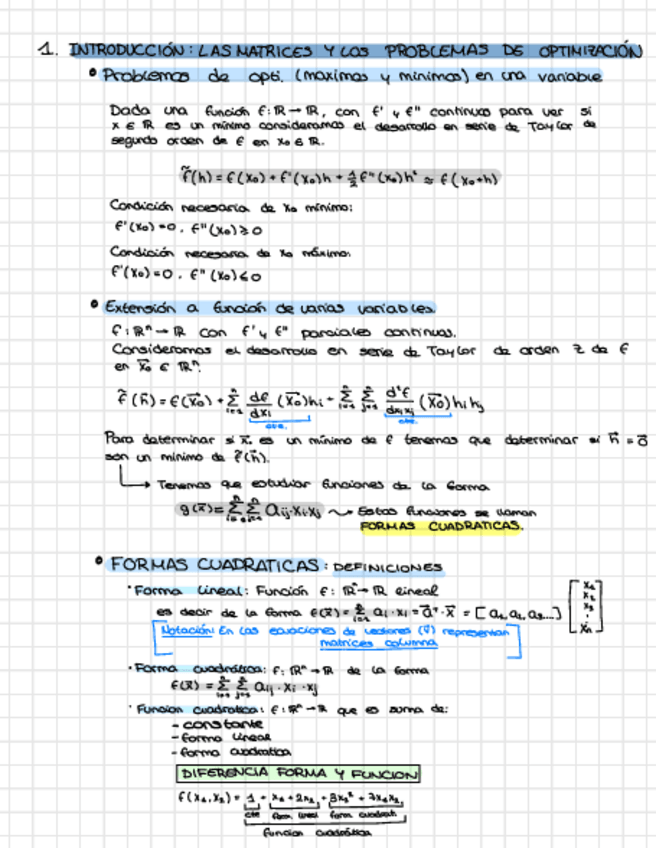 1. INTRODUCCIÓN: LAS MATRICES Y LOS PROBLEMAS DE OPTIMIZACIÓN
• Problemas de opti. (maximos y minimos) en una variable
Dada una función f: ℝ → ℝ, con f' y f'' continuas para ver si
x ∈ ℝ es un mínimo consideramos el desarrollo en serie de Taylor de
segundo orden de f en x₀ ∈ ℝ.
f̃(h) = f(x₀) + f'(x₀)h + ½ f''(x₀)h² ≈ f(x₀+h)
Condición necesaria de x₀ mínimo:
f'(x₀) = 0, f''(x₀) ≥ 0
Condición necesaria de x₀ máximo:
f'(x₀) = 0, f''(x₀) ≤ 0
• Extensión a función de varias variables.
f: ℝⁿ → ℝ con f' y f'' parciales continuas.
Consideramos el desarrollo en serie de Taylor de orden 2 de f
en x⃗₀ ∈ ℝⁿ.
f̃(h⃗) = f(x⃗₀) + Σⁿᵢ₌₁ df/dxᵢ (x⃗₀)hᵢ + Σⁿᵢ₌₁ Σⁿⱼ₌₁ d²f/dxᵢxⱼ (x⃗₀)hᵢhⱼ
cte. cte.
Para determinar si x⃗₀ es un mínimo de f tenemos que determinar si h⃗ = 0⃗
son un mínimo de f̃(h⃗).
→ Tenemos que estudiar funciones de la forma
g(x⃗) = Σⁿᵢ₌₁ Σⁿⱼ₌₁ aᵢⱼ·xᵢ·xⱼ ⤳ Estas funciones se llaman
FORMAS CUADRATICAS.
• FORMAS CUADRATICAS: DEFINICIONES
· Forma lineal: Función f: ℝⁿ → ℝ lineal
es decir de la forma f(x⃗) = Σⁿᵢ₌₁ aᵢ·xᵢ = a⃗ᵗ·x⃗ = [a₁, a₂, a₃...] [x₁ x₂ x₃ ⋮ xₙ]
[Notación: En las ecuaciones de vectores (v⃗) representan
matrices columna]
· Forma cuadrática: f: ℝⁿ → ℝ de la forma
f(x⃗) = Σⁿᵢ₌₁ Σⁿⱼ₌₁ aᵢⱼ·xᵢ·xⱼ
· Funcion cuadratica: f: ℝⁿ → ℝ que es suma de:
- constante
- forma lineal
- forma cuadratica
DIFERENCIA FORMA Y FUNCION
f(x₁,x₂) = 1 + x₁ + 2x₂ + 3x₂² + 7x₁x₂
cte form. lineal form. cuadrat.
función cuadrática